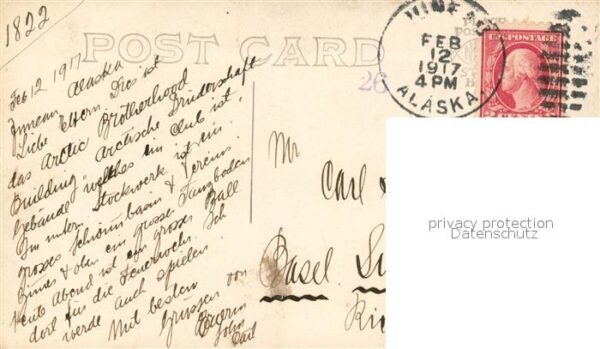 1822
POST CARD
Feb 12, 1917
Juneau, Alaska
Liebe Eltern. Dies ist
das Arctic Brotherhood
Building "Arctische Bruderschaft
Gebäude" welches ein Club ist,
Im unter Stockwerk ist ein
grosses Schwimbasin & Vereins
Zimer & oben ein grosser Tanzboden
Heute Abend ist ein grosser Ball
dort für die Feuerwehr. Ich
werde auch spielen.
Mit besten
Grüssen von
Euerm
Sohn
Carl
JUNEAU
FEB
12
1917
4 PM
ALASKA
U.S. POSTAGE
26
Mr
Carl
Basel.
privacy protection
Datenschutz